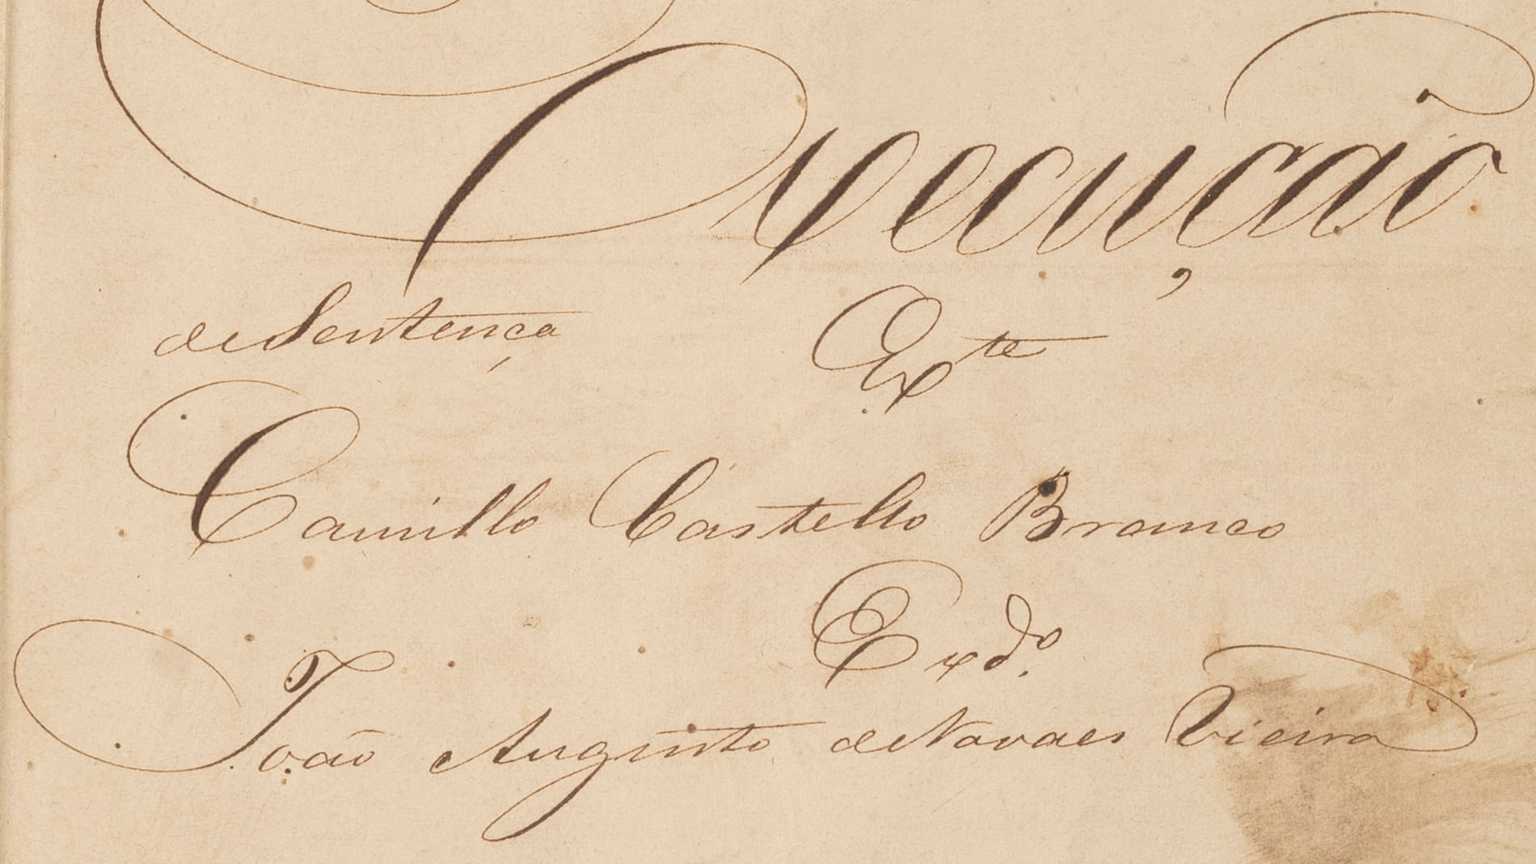 Execução
de Sentença
Exte
Camillo Castello Branco
Exdo.
João Augusto de Novaes Vieira